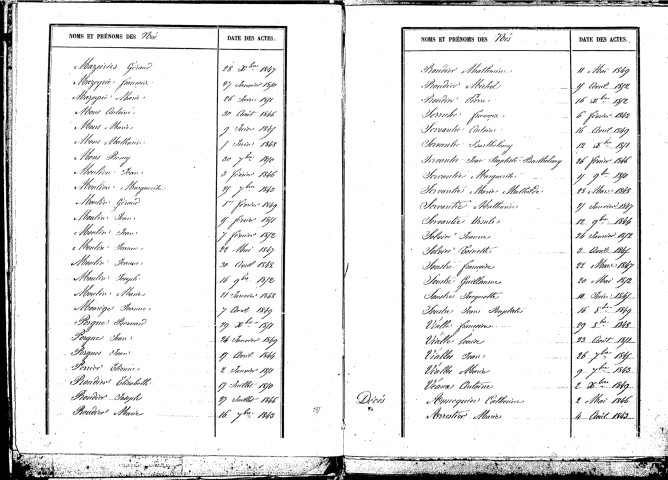 NOMS ET PRÉNOMS DES Nés DATE DES ACTES.
Mazeiries Géraud 28 Xbre 1847
Mazeyrie françois 27 Janvier 1850
Mazeyrie Marie 26 Juin 1851
Mons Antoine 30 Août 1846
Mons Marie 9 Juin 1845
Mons Mathurin 1 Juin 1848
Mons Remy 30 7bre 1850
Moulin Jean 3 février 1846
Moulin Marguerite 25 7bre 1843
Moulin Géraud 1er février 1849
Moulin Jean 15 février 1851
Moulin Jean 7 février 1852
Moulin Jeanne 22 Mai 1847
Moulin Jeanne 30 Août 1848
Moulin Joseph 16 9bre 1852
Moulin Marie 21 Janvier 1848
Jeanne 7 Août 1849
Pesque Bernard 29 Xbre 1851
Pesque Jean 24 Janvier 1849
Pesques Jean 19 Août 1844
Perrier Etienne 2 Janvier 1851
Poudier Elisabeth 19 Juillet 1850
Poudier Joseph 27 Juillet 1846
Poudier Marie 16 7bre 1843
NOMS ET PRÉNOMS DES Nés DATE DES ACTES.
Poudier Mathurin 11 Mai 1849
Poudier Michel 15 Août 1852
Poudier 16 Xbre 1852
françois 6 février 1843
Servantie Antoine 16 Août 1849
Servantie Barthélemy 12 Xbre 1851
Servantie Jean Baptiste Barthélemy 26 février 1846
Servantie Marguerite 15 9bre 1850
Servantie Marie Mathilde 28 Mars 1848
Servantie Mathurin 21 Janvier 1847
Servantie Ursule 12 9bre 1844
Jeanne 24 Janvier 1852
Toinette 3 Août 1845
Soustre françoise 22 Mars 1847
Soustre Guillaume 20 Mai 1852
Soustre Jacquette 10 Juin 1845
Soustre Jean Baptiste 16 8bre 1849
Vialle françoise 29 8bre 1848
Vialle Louise 23 Août 1851
Vialles Jean 26 7bre 1845
Vialles Marie 9 7bre 1843
Antoine 2 Xbre 1849
Décès Catherine 2 Mai 1846
Marie 4 Août 1843